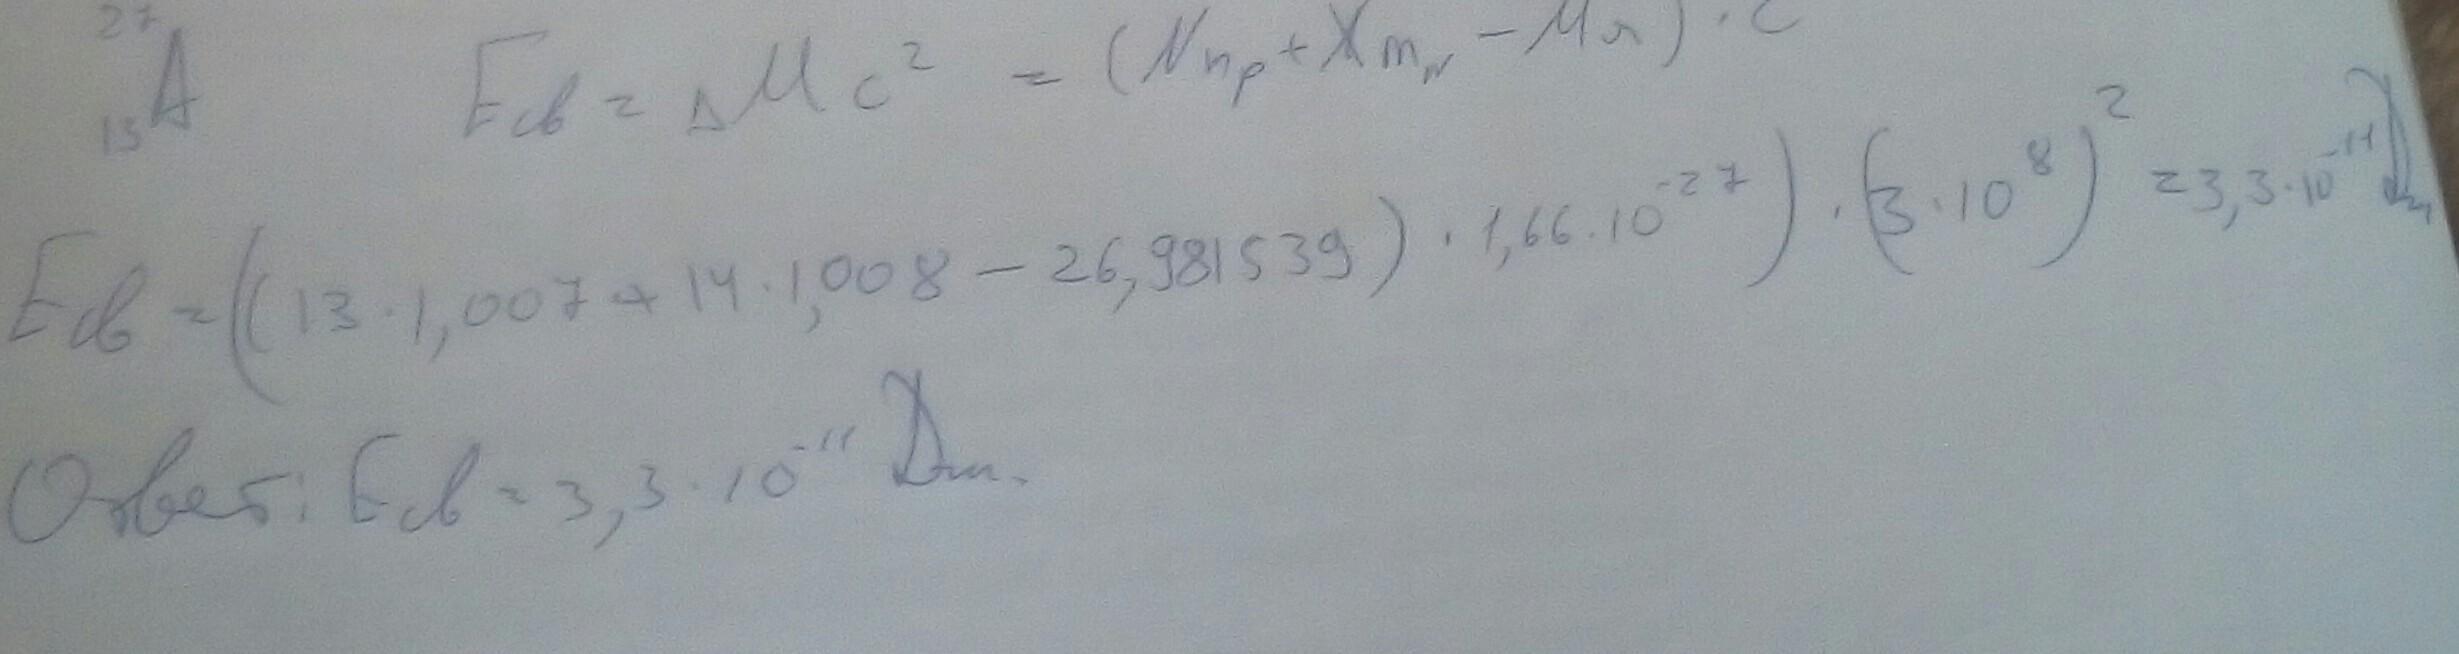 ²⁷₁₃A   Eсв = ΔMc² = (Nmp + Xmn - Mя) · c
Eсв = ((13 · 1,007 + 14 · 1,008 - 26,981539) · 1,66 · 10⁻²⁷) · (3 · 10⁸)² = 3,3 · 10⁻¹¹ Дж
Ответ: Eсв = 3,3 · 10⁻¹¹ Дж.